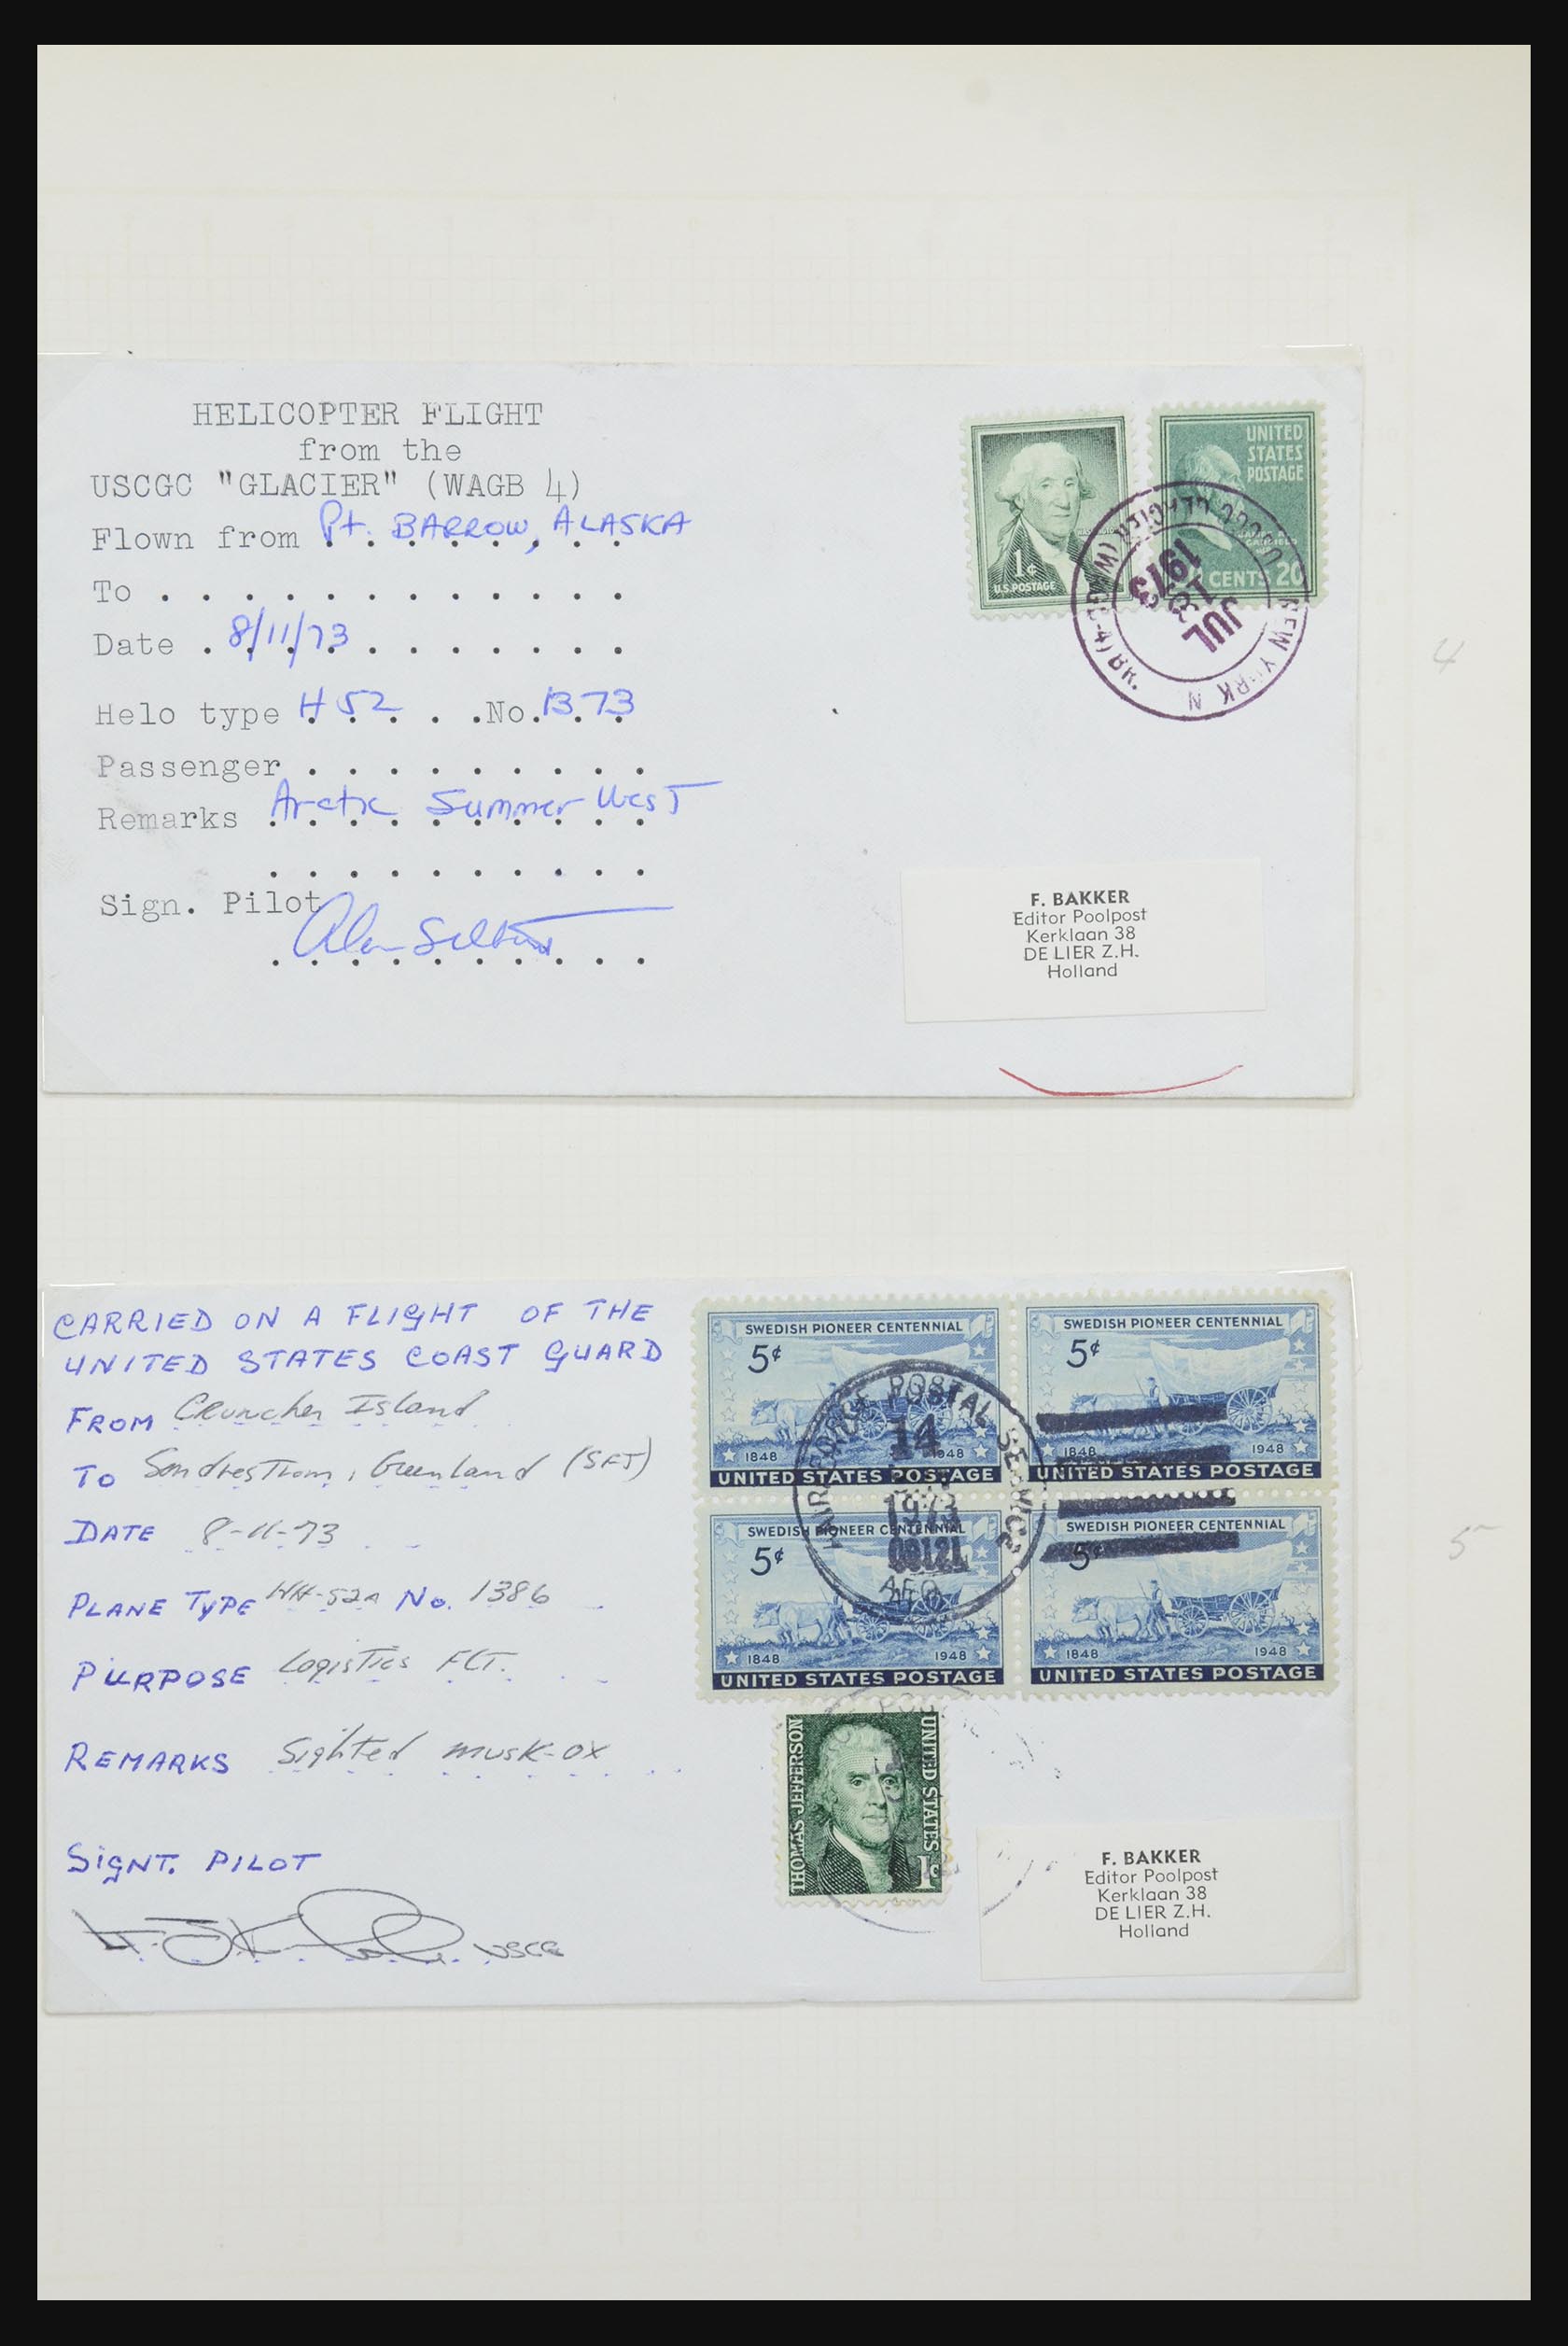 HELICOPTER FLIGHT
from the
USCGC "GLACIER" (WAGB 4)
Flown from Pt. BARROW, ALASKA
To . . . . . . . . . . . .
Date . 8/11/73
Helo type H 52 . . . No. 1373
Passenger . . . . . . . . .
Remarks Arctic Summer West
Sign. Pilot
1¢
U.S. POSTAGE
UNITED
STATES
POSTAGE
CENTS 20
JUL
13
1973
NEW YORK N
(WAGB-4) BR.
F. BAKKER
Editor Poolpost
Kerklaan 38
DE LIER Z.H.
Holland
4
CARRIED ON A FLIGHT OF THE
UNITED STATES COAST GUARD
FROM Cruncher Island
TO Sondrestrom, Greenland (SFJ)
DATE 8-11-73
PLANE TYPE HH-52A No. 1386
PURPOSE Logistics FLT.
REMARKS Sighted musk-ox
SIGNT. PILOT
USCG
SWEDISH PIONEER CENTENNIAL
5¢
1848 1948
UNITED STATES POSTAGE
SWEDISH PIONEER CENTENNIAL
5¢
1848 1948
UNITED STATES POSTAGE
SWEDISH PIONEER CENTENNIAL
5¢
1848 1948
UNITED STATES POSTAGE
SWEDISH PIONEER CENTENNIAL
5¢
1848 1948
UNITED STATES POSTAGE
AIR FORCE POSTAL SERVICE
14
1973
09121
APO
THOMAS JEFFERSON
UNITED STATES
1¢
F. BAKKER
Editor Poolpost
Kerklaan 38
DE LIER Z.H.
Holland
5